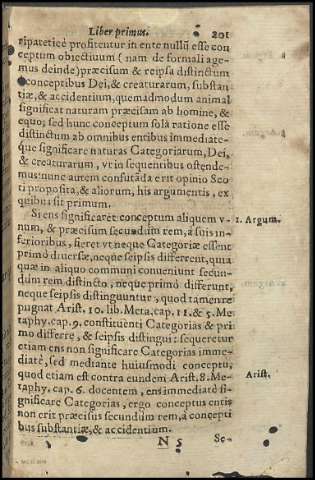 Liber primus. 201
ripatetice profitentur in ente nullũ esse con
ceptum obiectiuum ( nam de formali age-
mus deinde) præcisum & reipsa distinctum
à conceptibus Dei, & creaturarum, substan
tiæ, & accidentium, quemadmodum animal
significat naturam præcisam ab homine, &
equo; sed hunc conceptum sola ratione esse
distinctum ab omnibus entibus immediate-
que significare naturas Categoriarum, Dei,
& creaturarum, vt in sequentibus ostende-
mus: nunc autem confutãda erit opinio Sco
ti proposita, & aliorum, his argumentis, ex
quibus sit primum.
Si ens significaret conceptum aliquem v- 1. Argum.
num, & præcisum secundum rem, à suis in-
ferioribus, fieret vt neque Categoriæ essent
primò diuersæ, neque seipsis different, quia
quæ in aliquo communi conueniunt secun-
dum rem distincto, neque primò differunt,
neque seipsis distinguuntur, quod tamen re
pugnat Arist. 10. lib. Meta. cap. 11. & 5. Me-
taphy. cap. 9. constituenti Categorias & pri
mo differre, & seipsis distingui: sequeretur
etiam ens non significare Categorias imme-
diatè, sed mediante huiusmodi conceptu,
quod etiam est contra eundem Arist. 8. Me- Arist.
taphy. cap. 6. docentem, ens immediatè si-
gnificare Categorias, ergo conceptus entis
non erit præcisus secundum rem, à concepti
bus substantiæ, & accidentium.
N 5 Se-